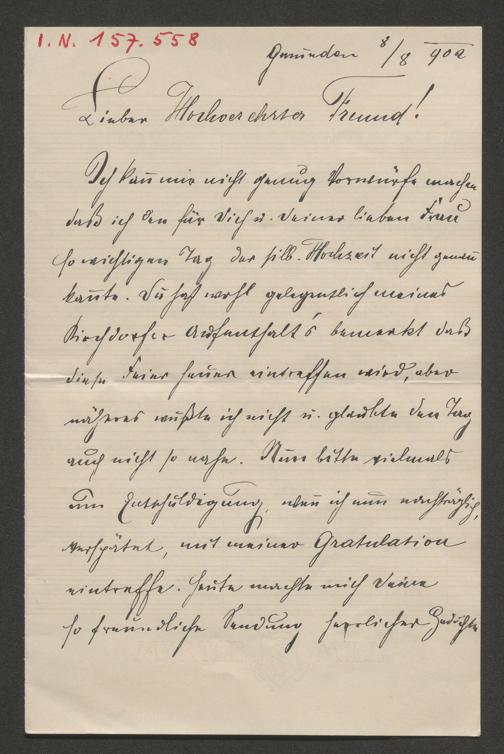 I. N. 157.558
Gmunden 8/8 902
Lieber Hochverehrter Freund!
Ich kann mir nicht genug Vorwürfe machen
daß ich den für Dich u. Deiner lieben Frau
so wichtigen Tag der silb. Hochzeit nicht genau
kannte. Du hast wohl gelegentlich meines
Kirchdorfer Aufenthalt's bemerkt daß
diese Feier heuer eintreffen wird, aber
näheres wußte ich nicht u. glaubte den Tag
auch nicht so nahe. Nun bitte vielmals
um Entschuldigung, wenn ich nun nachträglich,
verspätet, mit meiner Gratulation
eintreffe. Heute machte mich Deine
so freundliche Sendung herrlicher Gedichte